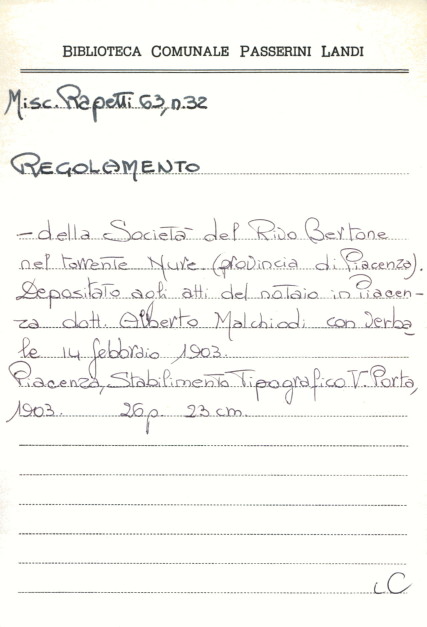 BIBLIOTECA COMUNALE PASSERINI LANDI
Misc. Rapetti 63, n.32
REGOLAMENTO
- della Società del Rivo Bertone
nel torrente Nure. (provincia di Piacenza).
Depositato agli atti del notaio in Piacen-
za dott. Alberto Malchiodi con verba
le 14 febbraio 1903.
Piacenza, Stabilimento Tipografico V. Porta,
1903. 26 p. 23 cm.
LC